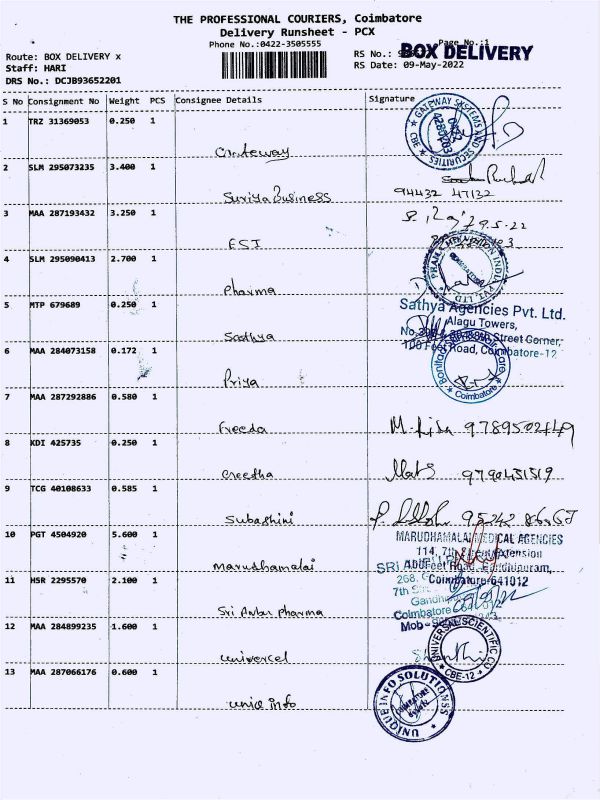 THE PROFESSIONAL COURIERS, Coimbatore
Delivery Runsheet - PCX
Phone No.:0422-3505555
Page No.:1
Route: BOX DELIVERY x
RS No.:
BOX DELIVERY
Staff: HARI
RS Date: 09-May-2022
DRS No.: DCJB93652201
S No Consignment No Weight PCS Consignee Details Signature
1 TRZ 31369053 0.250 1
GATEWAY SYSTEMS AND SECURITIES
CBE
Gateway
2 SLM 295073235 3.400 1
Suriya Business 94432 47132
3 MAA 287193432 3.250 1
ESI
4 SLM 295090413 2.700 1
Pharma
5 MTP 679689 0.250 1
Sathya Agencies Pvt. Ltd.
Alagu Towers,
Street Corner,
100 Feet Road, Coimbatore-12
Sathya
6 MAA 284073158 0.172 1
Coimbatore
Priya
7 MAA 287292886 0.580 1
Freeda
8 KDI 425735 0.250 1
9790451519
Creesha
9 TCG 40108633 0.585 1
Subashini
10 PGT 4504920 5.600 1
MARUDHAMALAI MEDICAL AGENCIES
114, 7th Street Extension
Marudhamalai
11 HSR 2295570 2.100 1
Coimbatore-641012
Sri Anbu Pharma
12 MAA 284899235 1.600 1
UNIVERSAL SCIENTIFIC CO
CBE-12
Univercel
13 MAA 287066176 0.600 1
UNIQUE INFO SOLUTIONSS
Uniq info